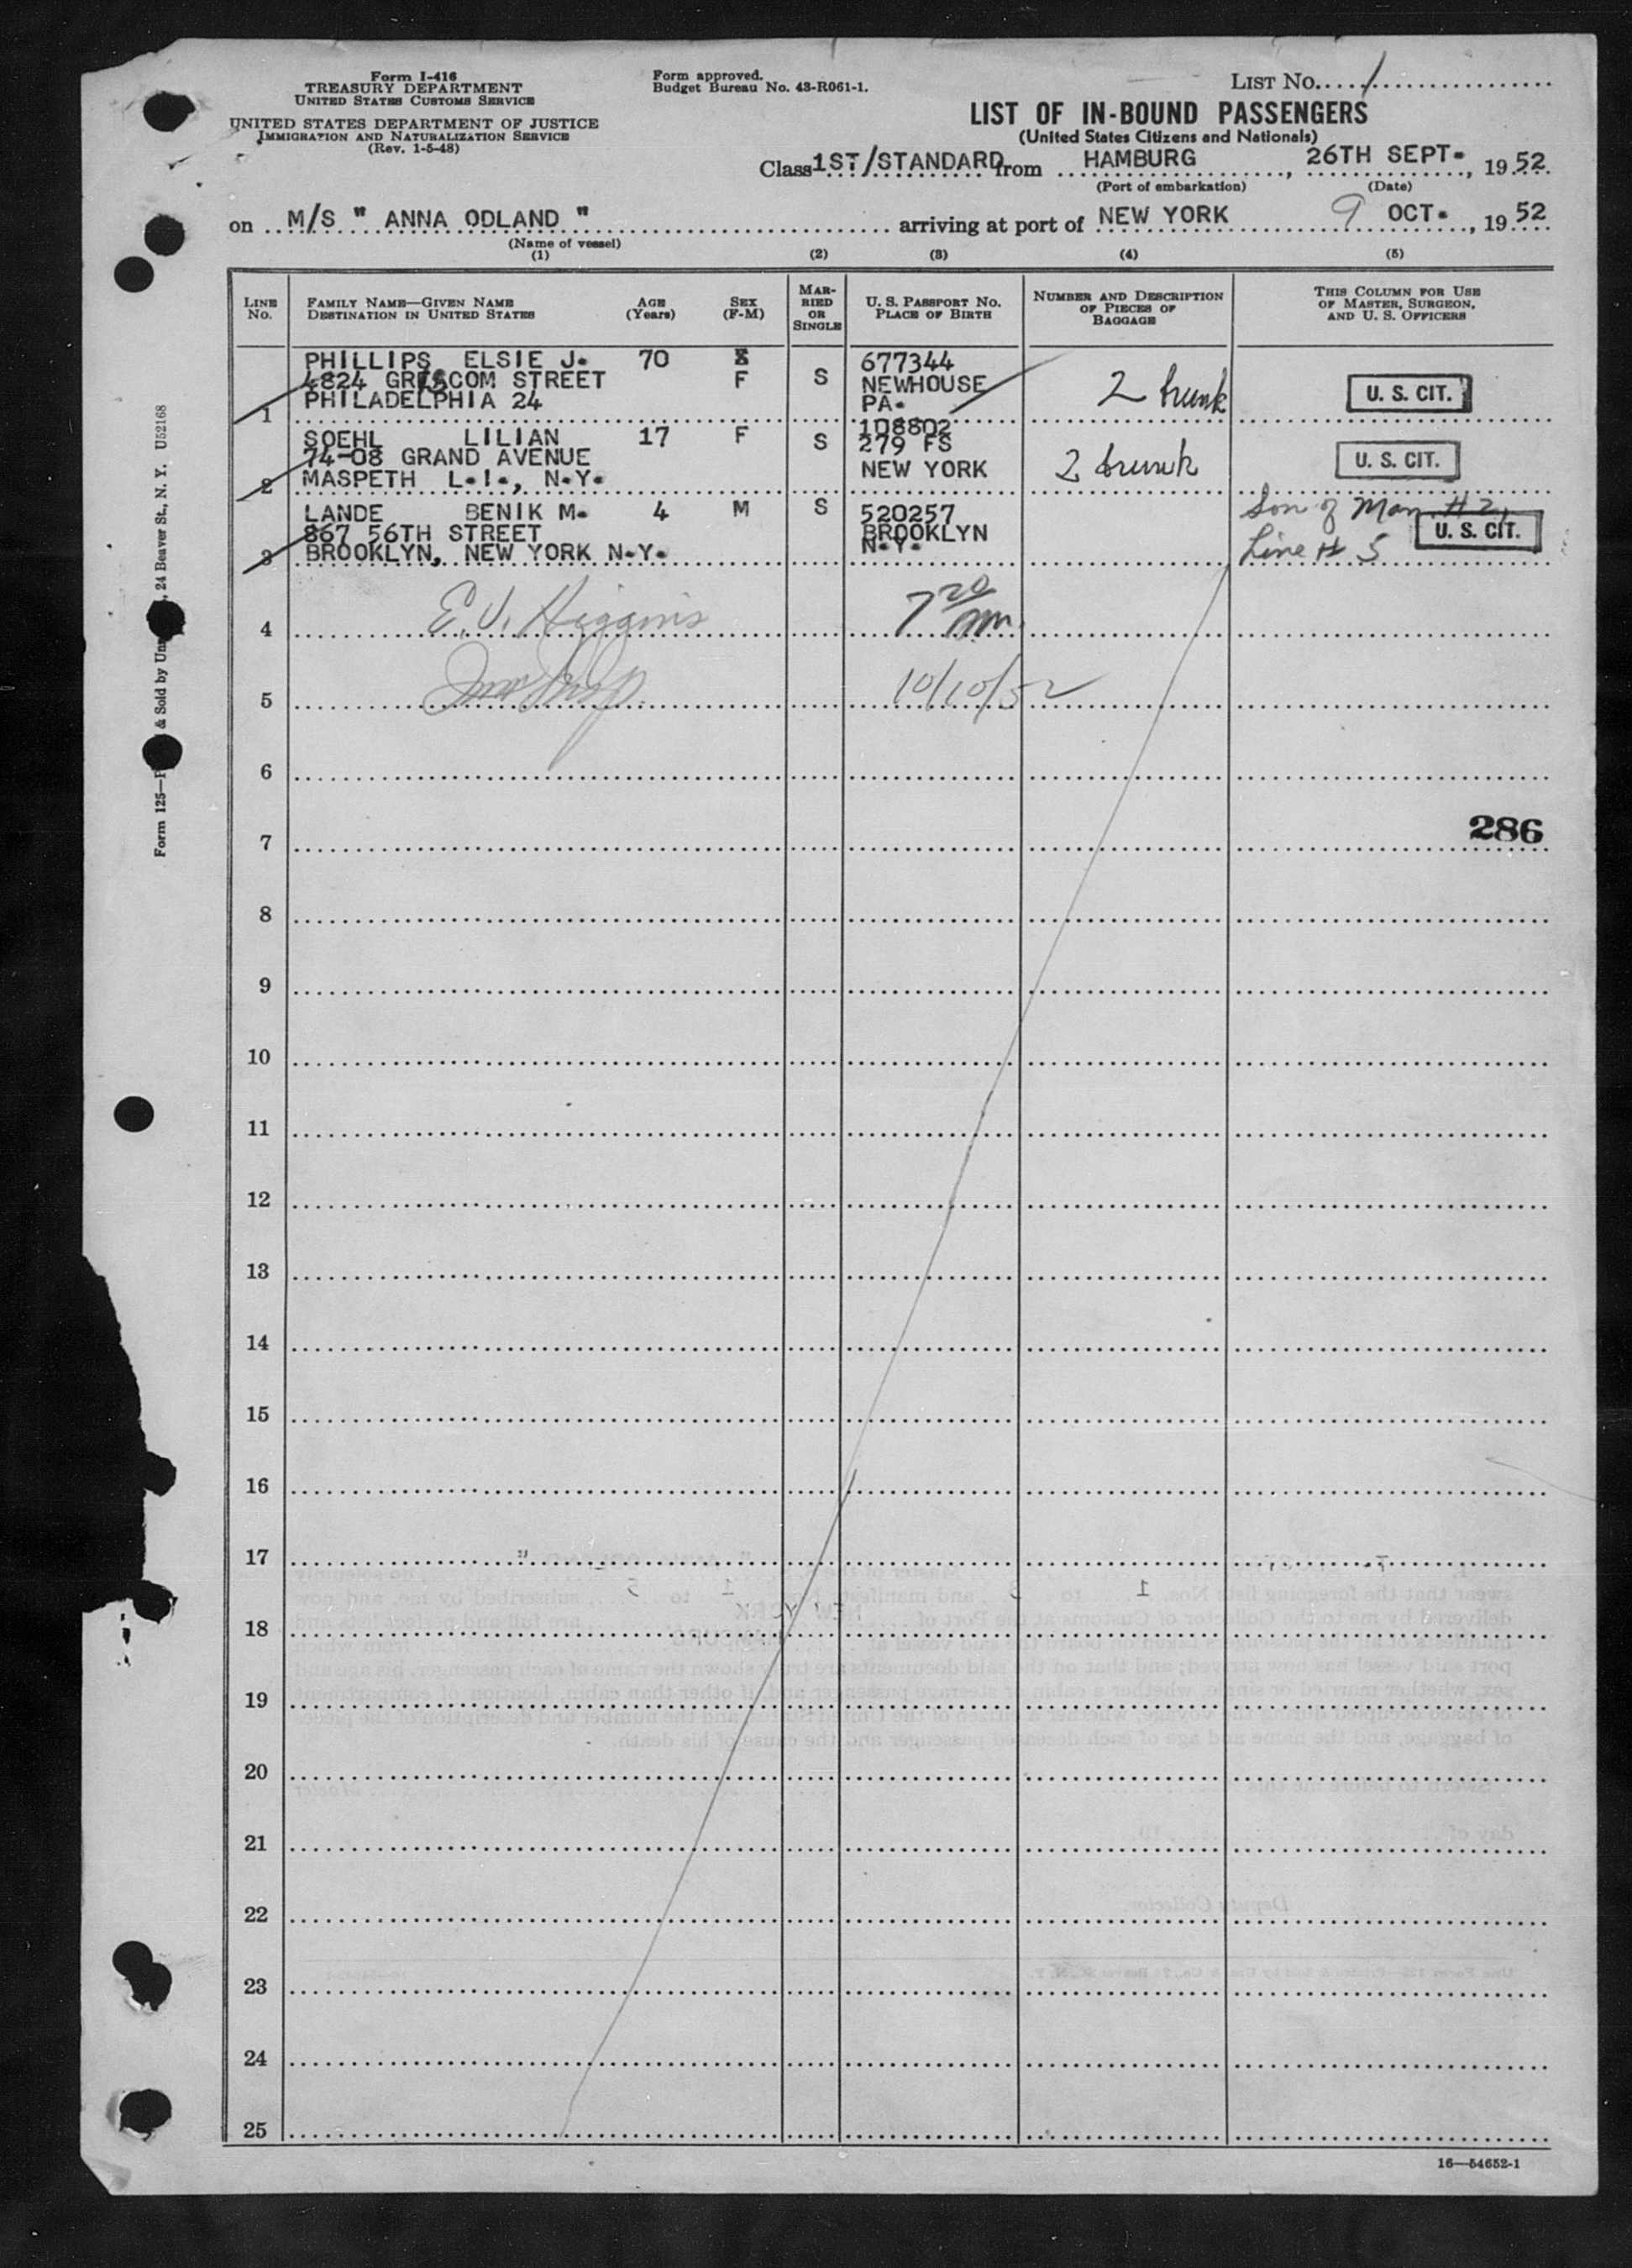 Form I-416
TREASURY DEPARTMENT
UNITED STATES CUSTOMS SERVICE
UNITED STATES DEPARTMENT OF JUSTICE
IMMIGRATION AND NATURALIZATION SERVICE
(Rev. 1-5-48)
Form approved.
Budget Bureau No. 43-R061-1.
LIST No. 1
LIST OF IN-BOUND PASSENGERS
(United States Citizens and Nationals)
Class 1ST/STANDARD from HAMBURG, 26TH SEPT. , 1952
(Port of embarkation) (Date)
on M/S " ANNA ODLAND " arriving at port of NEW YORK 9 OCT. , 1952
(Name of vessel)
(1) (2) (3) (4) (5)
LINE No.
FAMILY NAME—GIVEN NAME
DESTINATION IN UNITED STATES
AGE (Years)
SEX (F-M)
MARRIED OR SINGLE
U. S. PASSPORT NO.
PLACE OF BIRTH
NUMBER AND DESCRIPTION
OF PIECES OF
BAGGAGE
THIS COLUMN FOR USE
OF MASTER, SURGEON,
AND U. S. OFFICERS
PHILLIPS ELSIE J. 70 677344
4824 GRISCOM STREET F S NEWHOUSE 2 trunk U. S. CIT.
PHILADELPHIA 24 PA.
1
108802
SOEHL LILIAN 17 F S 279 FS
74-08 GRAND AVENUE U. S. CIT.
MASPETH L.I., N.Y. NEW YORK 2 trunk
2
LANDE BENIK M. 4 M S 520257 Son of Man. #2,
867 56TH STREET BROOKLYN U. S. CIT.
BROOKLYN, NEW YORK N.Y. N.Y. Line # 5
3
4 E. V. Higgins 7 20 am
5 10/10/52
6
7 286
8
9
10
11
12
13
14
15
16
17
18
19
20
21
22
23
24
25
16—54652-1
Form 125— & Sold by , 24 Beaver St., N. Y. U52168